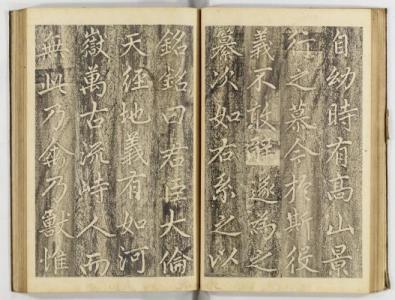 自幼時有高山景
行之慕今於斯役
義不敢辭遂爲之
纂次如右系之以
銘銘曰君臣大倫
天經地義有如河
嶽萬古流峙人而
無此乃禽乃獸惟